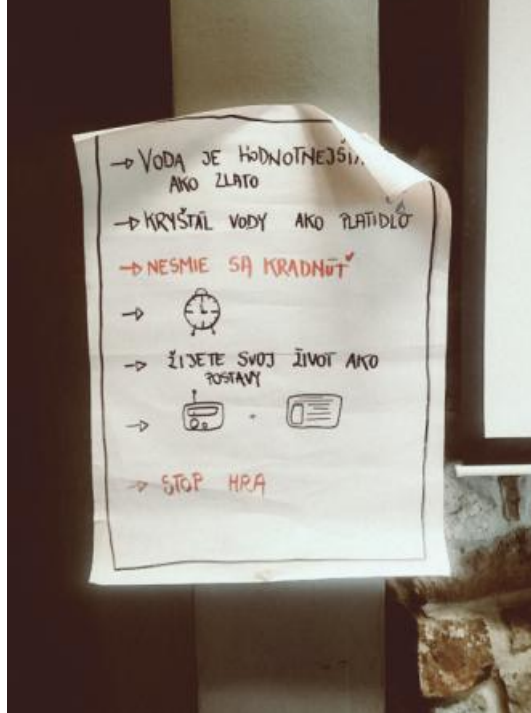 → VODA JE HODNOTNEJŠIA
AKO ZLATO
→ KRYŠTÁL VODY AKO PLATIDLO
→ NESMIE SA KRADNÚŤ
→
→ ŽIJETE SVOJ ŽIVOT AKO
POSTAVY
→
→ STOP HRA